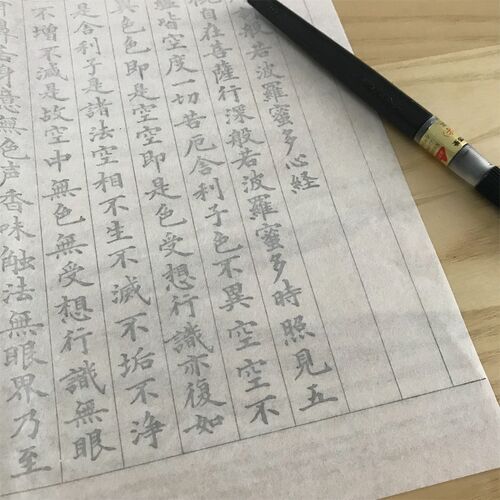 般若波羅蜜多心経
自在菩薩行深般若波羅蜜多時照見五
皆空度一切苦厄舎利子色不異空空不
異色色即是空空即是色受想行識亦復如
是舎利子是諸法空相不生不滅不垢不浄
不増不減是故空中無色無受想行識無眼
舌身意無色声香味触法無眼界乃至